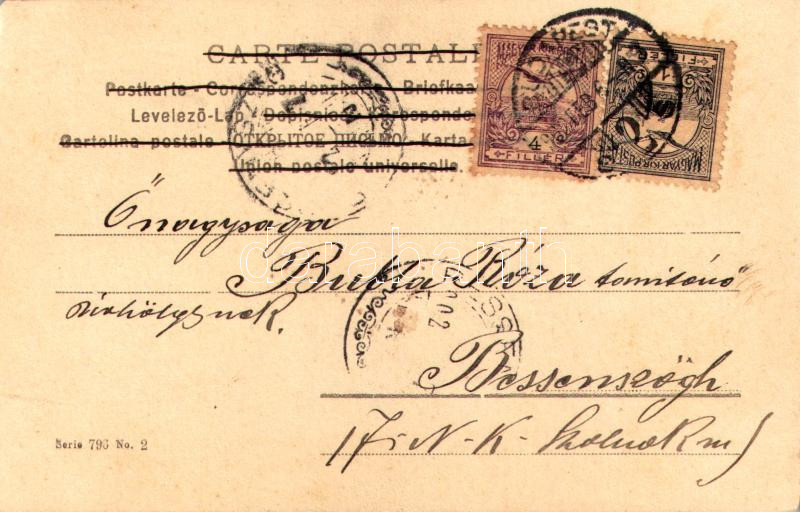 CARTE POSTALE
Postkarte - Correspondenzkarte - Briefkaa
Levelezö-Lap - Dopisnice - Corresponde
Cartolina postale - ОТКРЫТОЕ ПИСЬМО - Karta
Union postale universelle.
MAGYAR KIR. POSTA
4
FILLÉR
MAGYAR KIR. POSTA
1
FILLÉR
Őnagysága
Bukta Róza tanítónő
úrhölgynek.
902
Bessenszögh
(J-N-K-Szolnok m)
Serie 796 No. 2